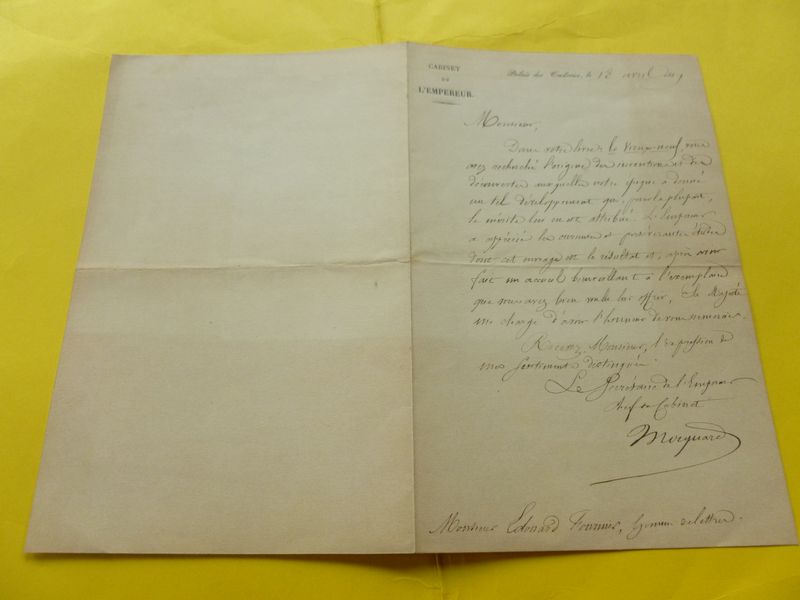 CABINET
DE
L'EMPEREUR.
Palais des Tuileries, le 12 avril 1859
Monsieur,
Dans votre livre le Vieux-neuf, vous
avez recherché l'origine des inventions et des
découvertes auxquelles votre époque a donné
un tel développement que, pour la plupart,
le mérite lui en est attribué. L'Empereur
a apprécié les curieuses et persévérantes études
dont cet ouvrage est le résultat et, après avoir
fait un accueil bienveillant à l'exemplaire
que vous avez bien voulu lui offrir, Sa Majesté
me charge d'avoir l'honneur de vous remercier.
Recevez, Monsieur, l'expression de
mes sentiments distingués.
Le Secrétaire de l'Empereur
chef du Cabinet
Mocquard
Monsieur Edouard Fournier, homme de lettres.